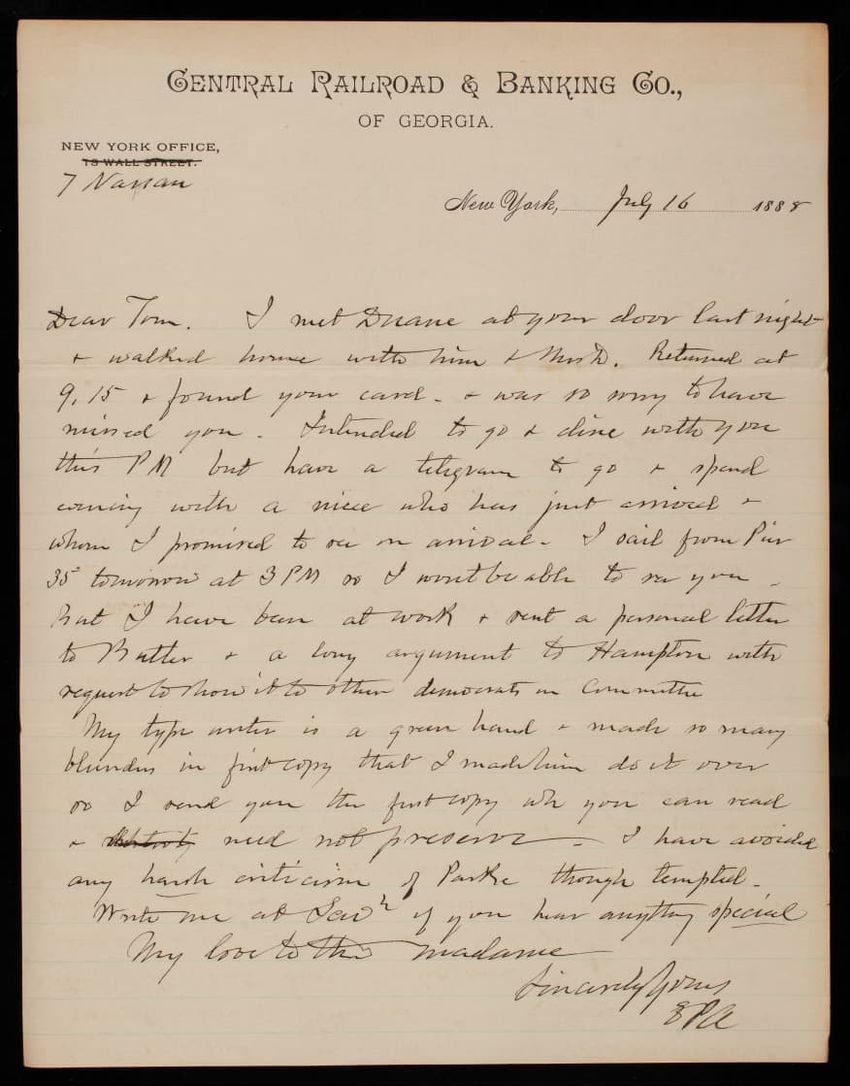 CENTRAL RAILROAD & BANKING CO.,
OF GEORGIA.
NEW YORK OFFICE,
13 WALL STREET.
7 Nassau
New York, July 16 1888
Dear Tom. I met Duane at your door last night
& walked home with him & Mrs D. Returned at
9.15 & found your card - & was so sorry to have
missed you. Intended to go & dine with you
this PM but have a telegram to go & spend
evening with a niece who has just arrived &
whom I promised to see on arrival - I sail from Pier
35 tomorrow at 3 PM so I wont be able to see you -
But I have been at work & sent a personal letter
to Butler & a long argument to Hampton with
request to show it to other democrats on Committee
My type writer is a green hand & made so many
blunders in first copy that I made him do it over
so I send you the first copy wh you can read
& need not preserve - I have avoided
any harsh criticism of Parke though tempted -
Write me at Savh if you hear anything special
My love to the madame
Sincerely Yours
EPA